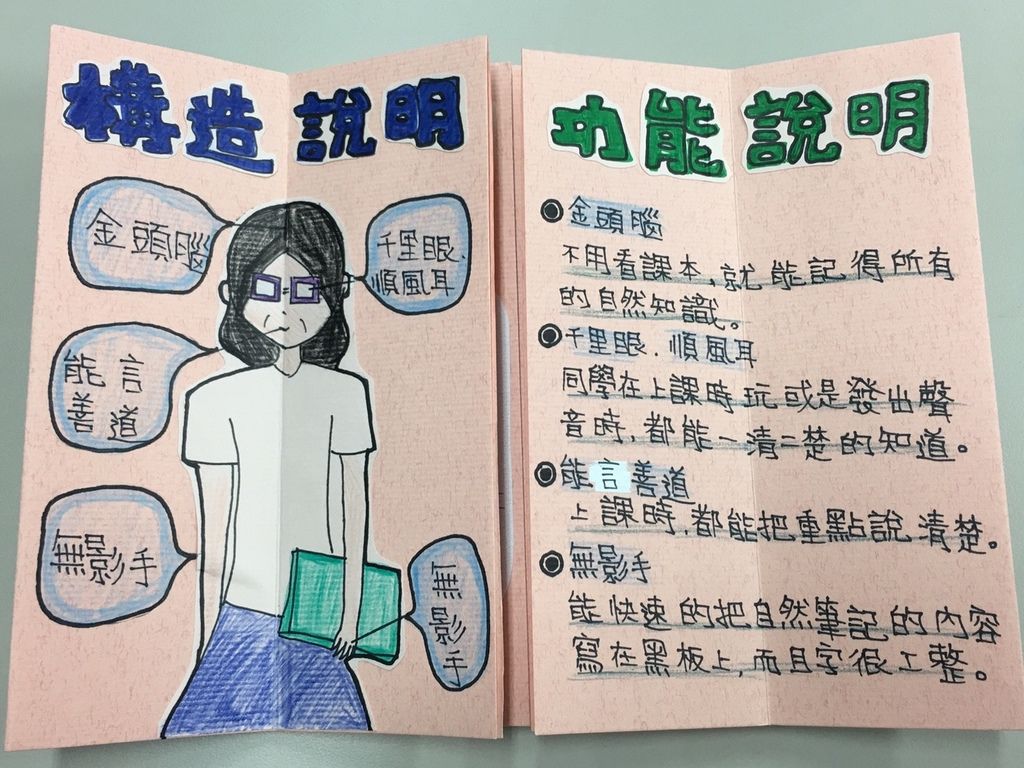 構造說明
金頭腦
千里眼、
順風耳
能言
善道
無影手
無影手
功能說明
金頭腦
不用看課本,就能記得所有
的自然知識。
千里眼、順風耳
同學在上課時玩或是發出聲
音時,都能一清二楚的知道。
能言善道
上課時,都能把重點說清楚。
無影手
能快速的把自然筆記的內容
寫在黑板上,而且字很工整。